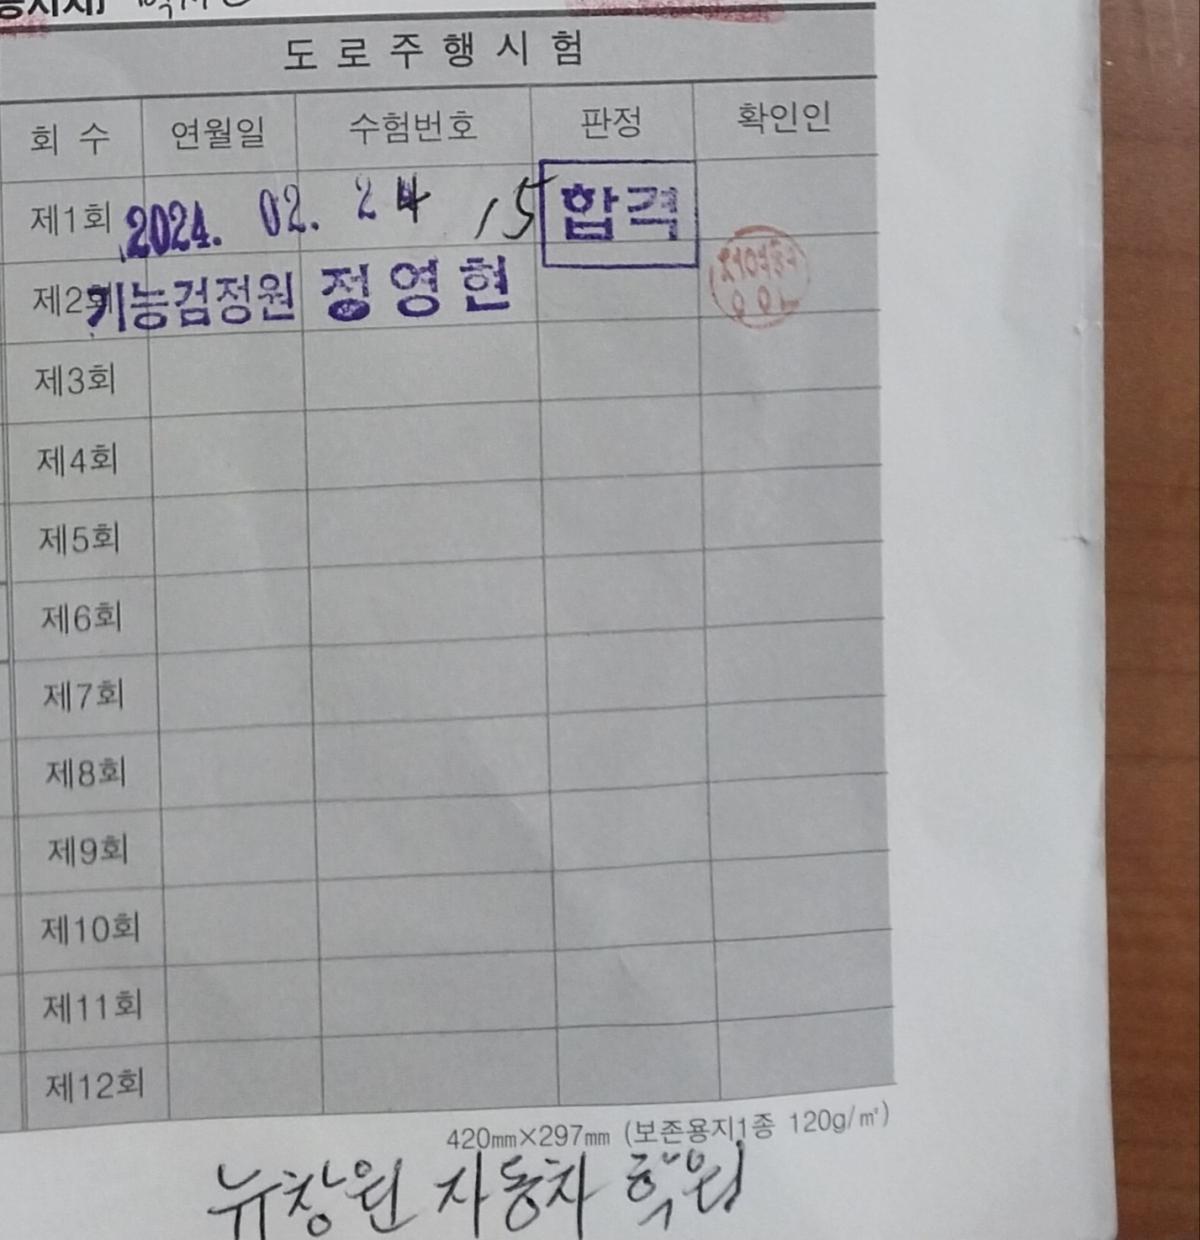 도로주행시험
회 수 연월일 수험번호 판정 확인인
제1회 2024. 02. 24 15 합격
제2회 기능검정원 정영현
제3회
제4회
제5회
제6회
제7회
제8회
제9회
제10회
제11회
제12회
420㎜×297㎜ (보존용지1종 120g/㎡)
뉴창원 자동차 학원